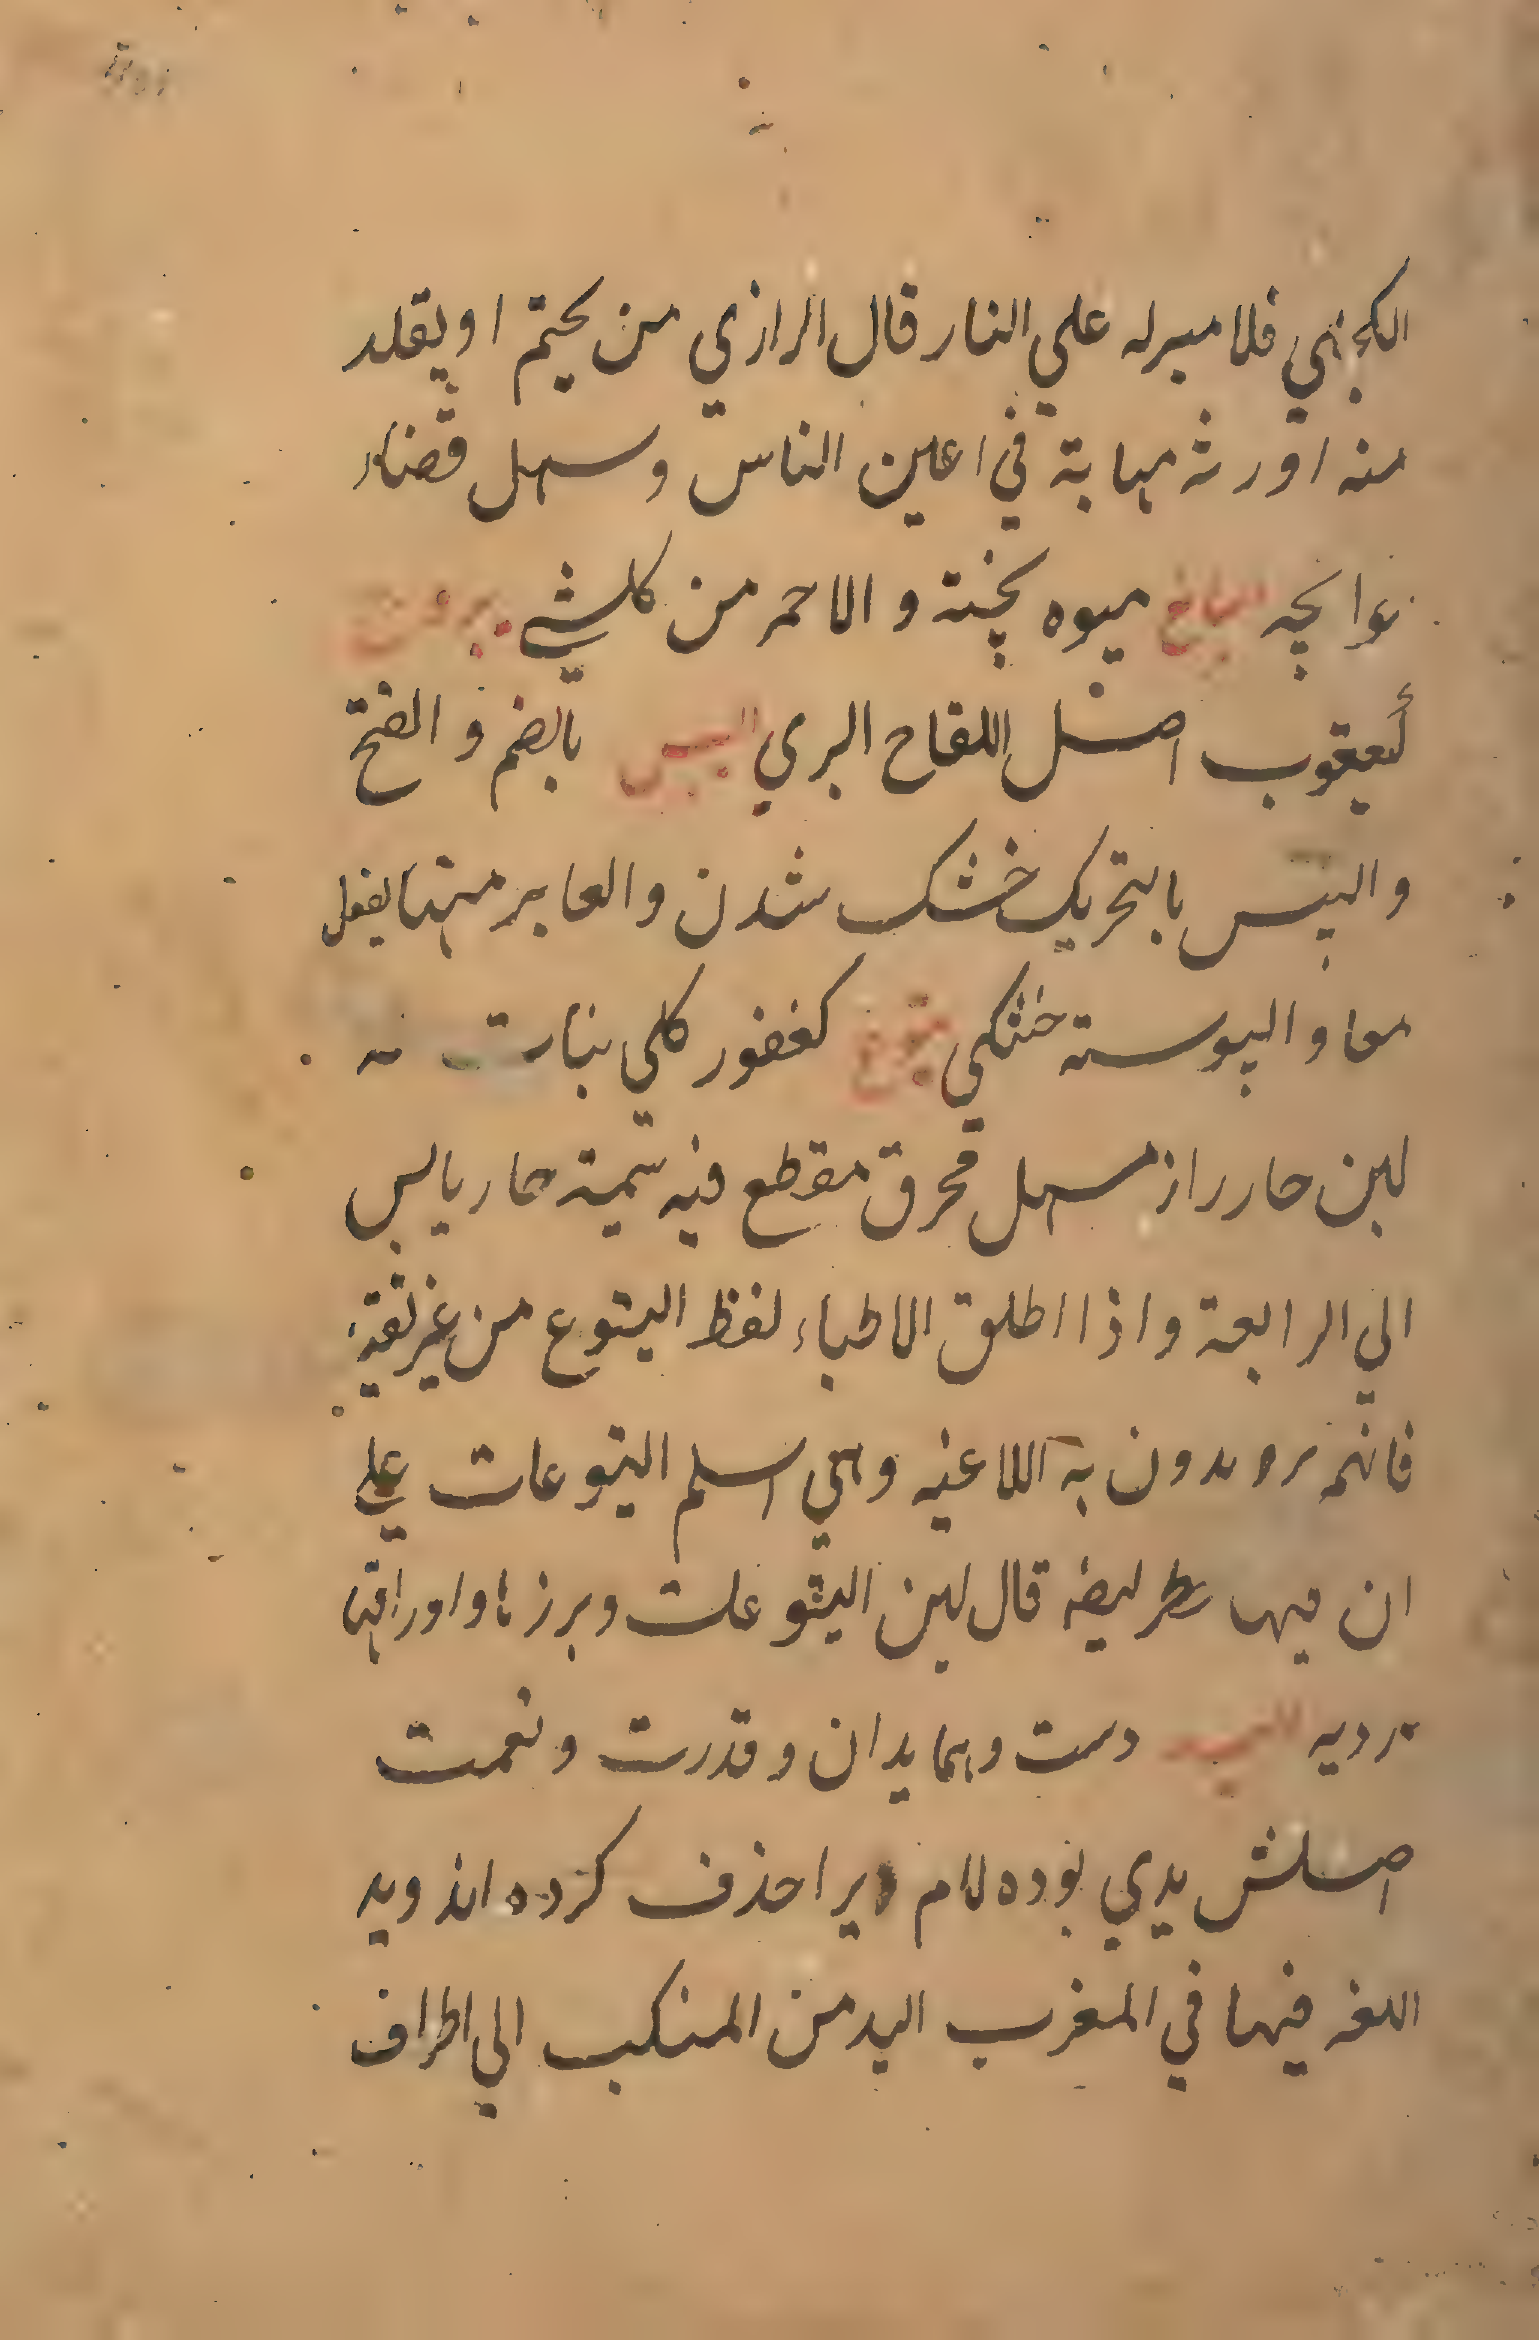 الكجهني فلا صبر له علي النار قال الرازي من يختم او يقلد
منه اورثه مهابة في اعين الناس وسهل قضاء
حوايجه اليانع ميوه پخته و الاحمر من كل شي يبروت
ليعقوب اصل اللقاح البري اليبس بالضم و الفتح
و اليبس بالتحريك خشك شدن و الغابر منهما يفعل
معا و اليبوسته خشكي يتوع كغفور كل نبات له
لبن حار راز مسهل محرق مقطع فيه سمية حار يابس
الي الرابعة و اذا اطلق الاطباء لفظ اليتوع من غير تقيه
فانهم يريدون به اللاعيه وهي اسلم اليتوعات علي
ان فيها قال لبن اليتوعات و برزها و اوراقها
رديه اليد دست و همايدان و قدرت و نعمت
اصلش يدي بوده لام ويرا حذف كرده اند ويد
اللغه فيها في المغرب اليد من المنكب الي اطراف